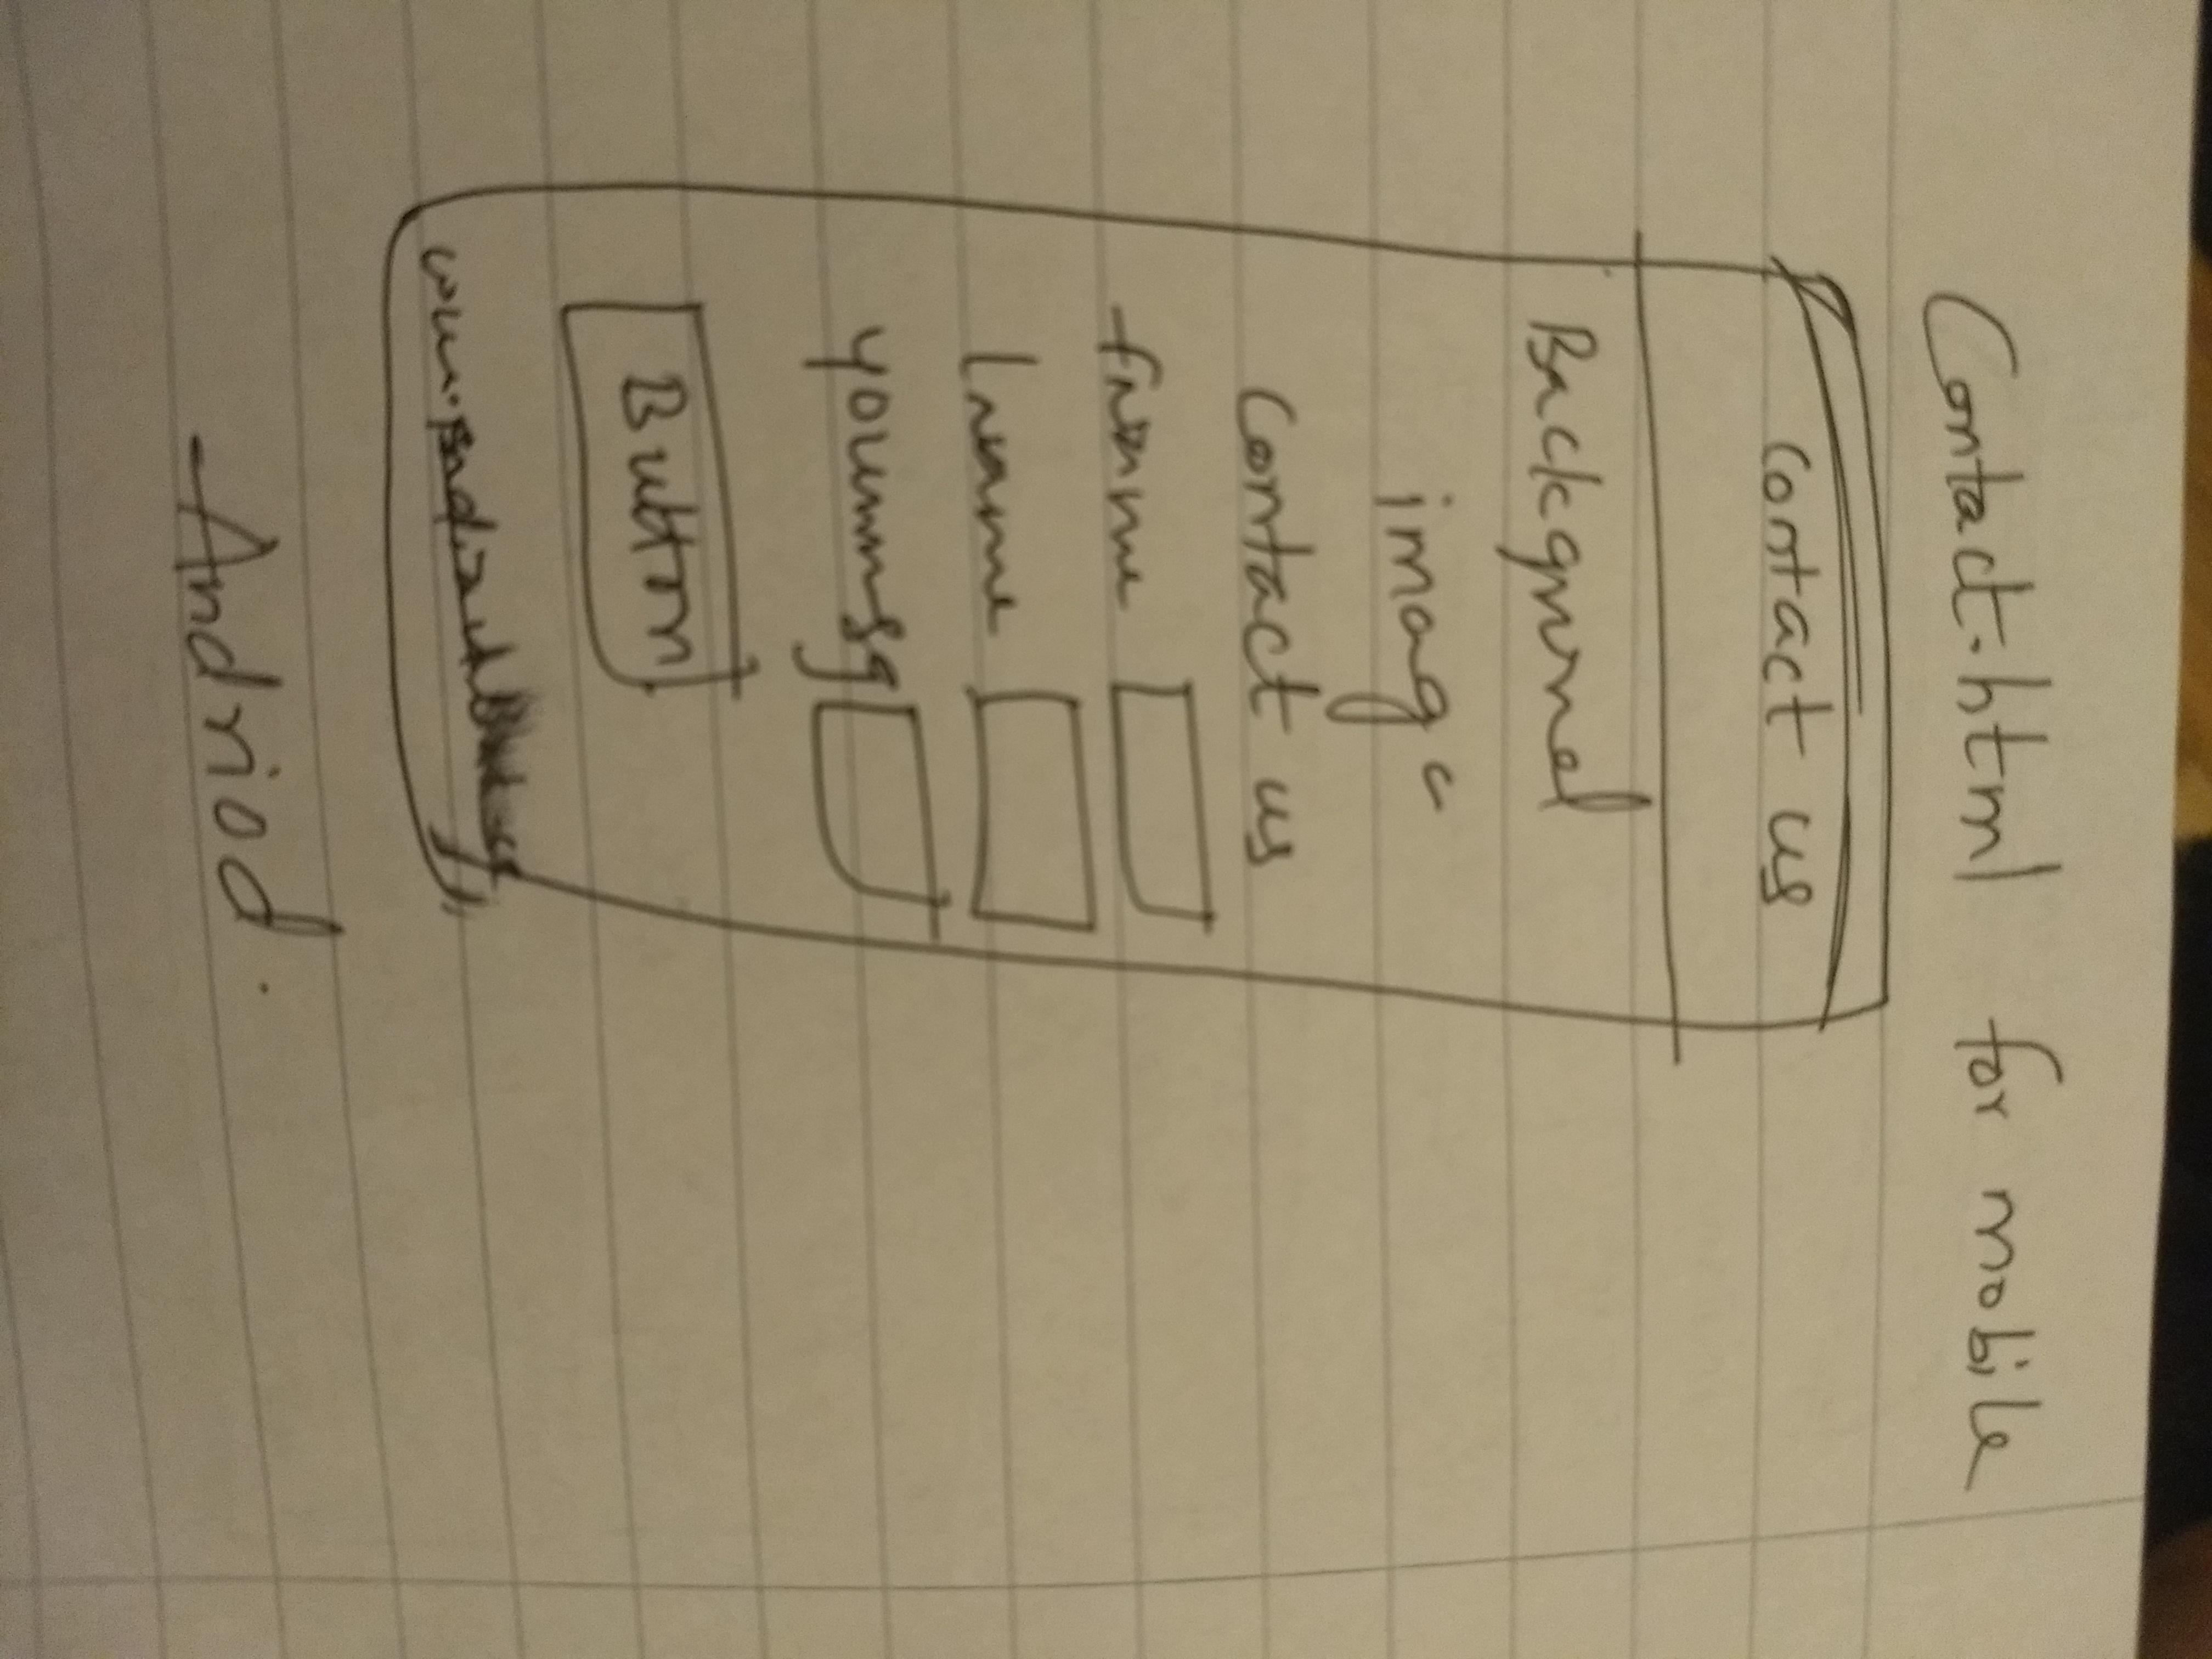 Contact.html for mobile
Contact us
Backgrnel
image
Contact us
fname
Lname
yourmsg
Button
Andriod.